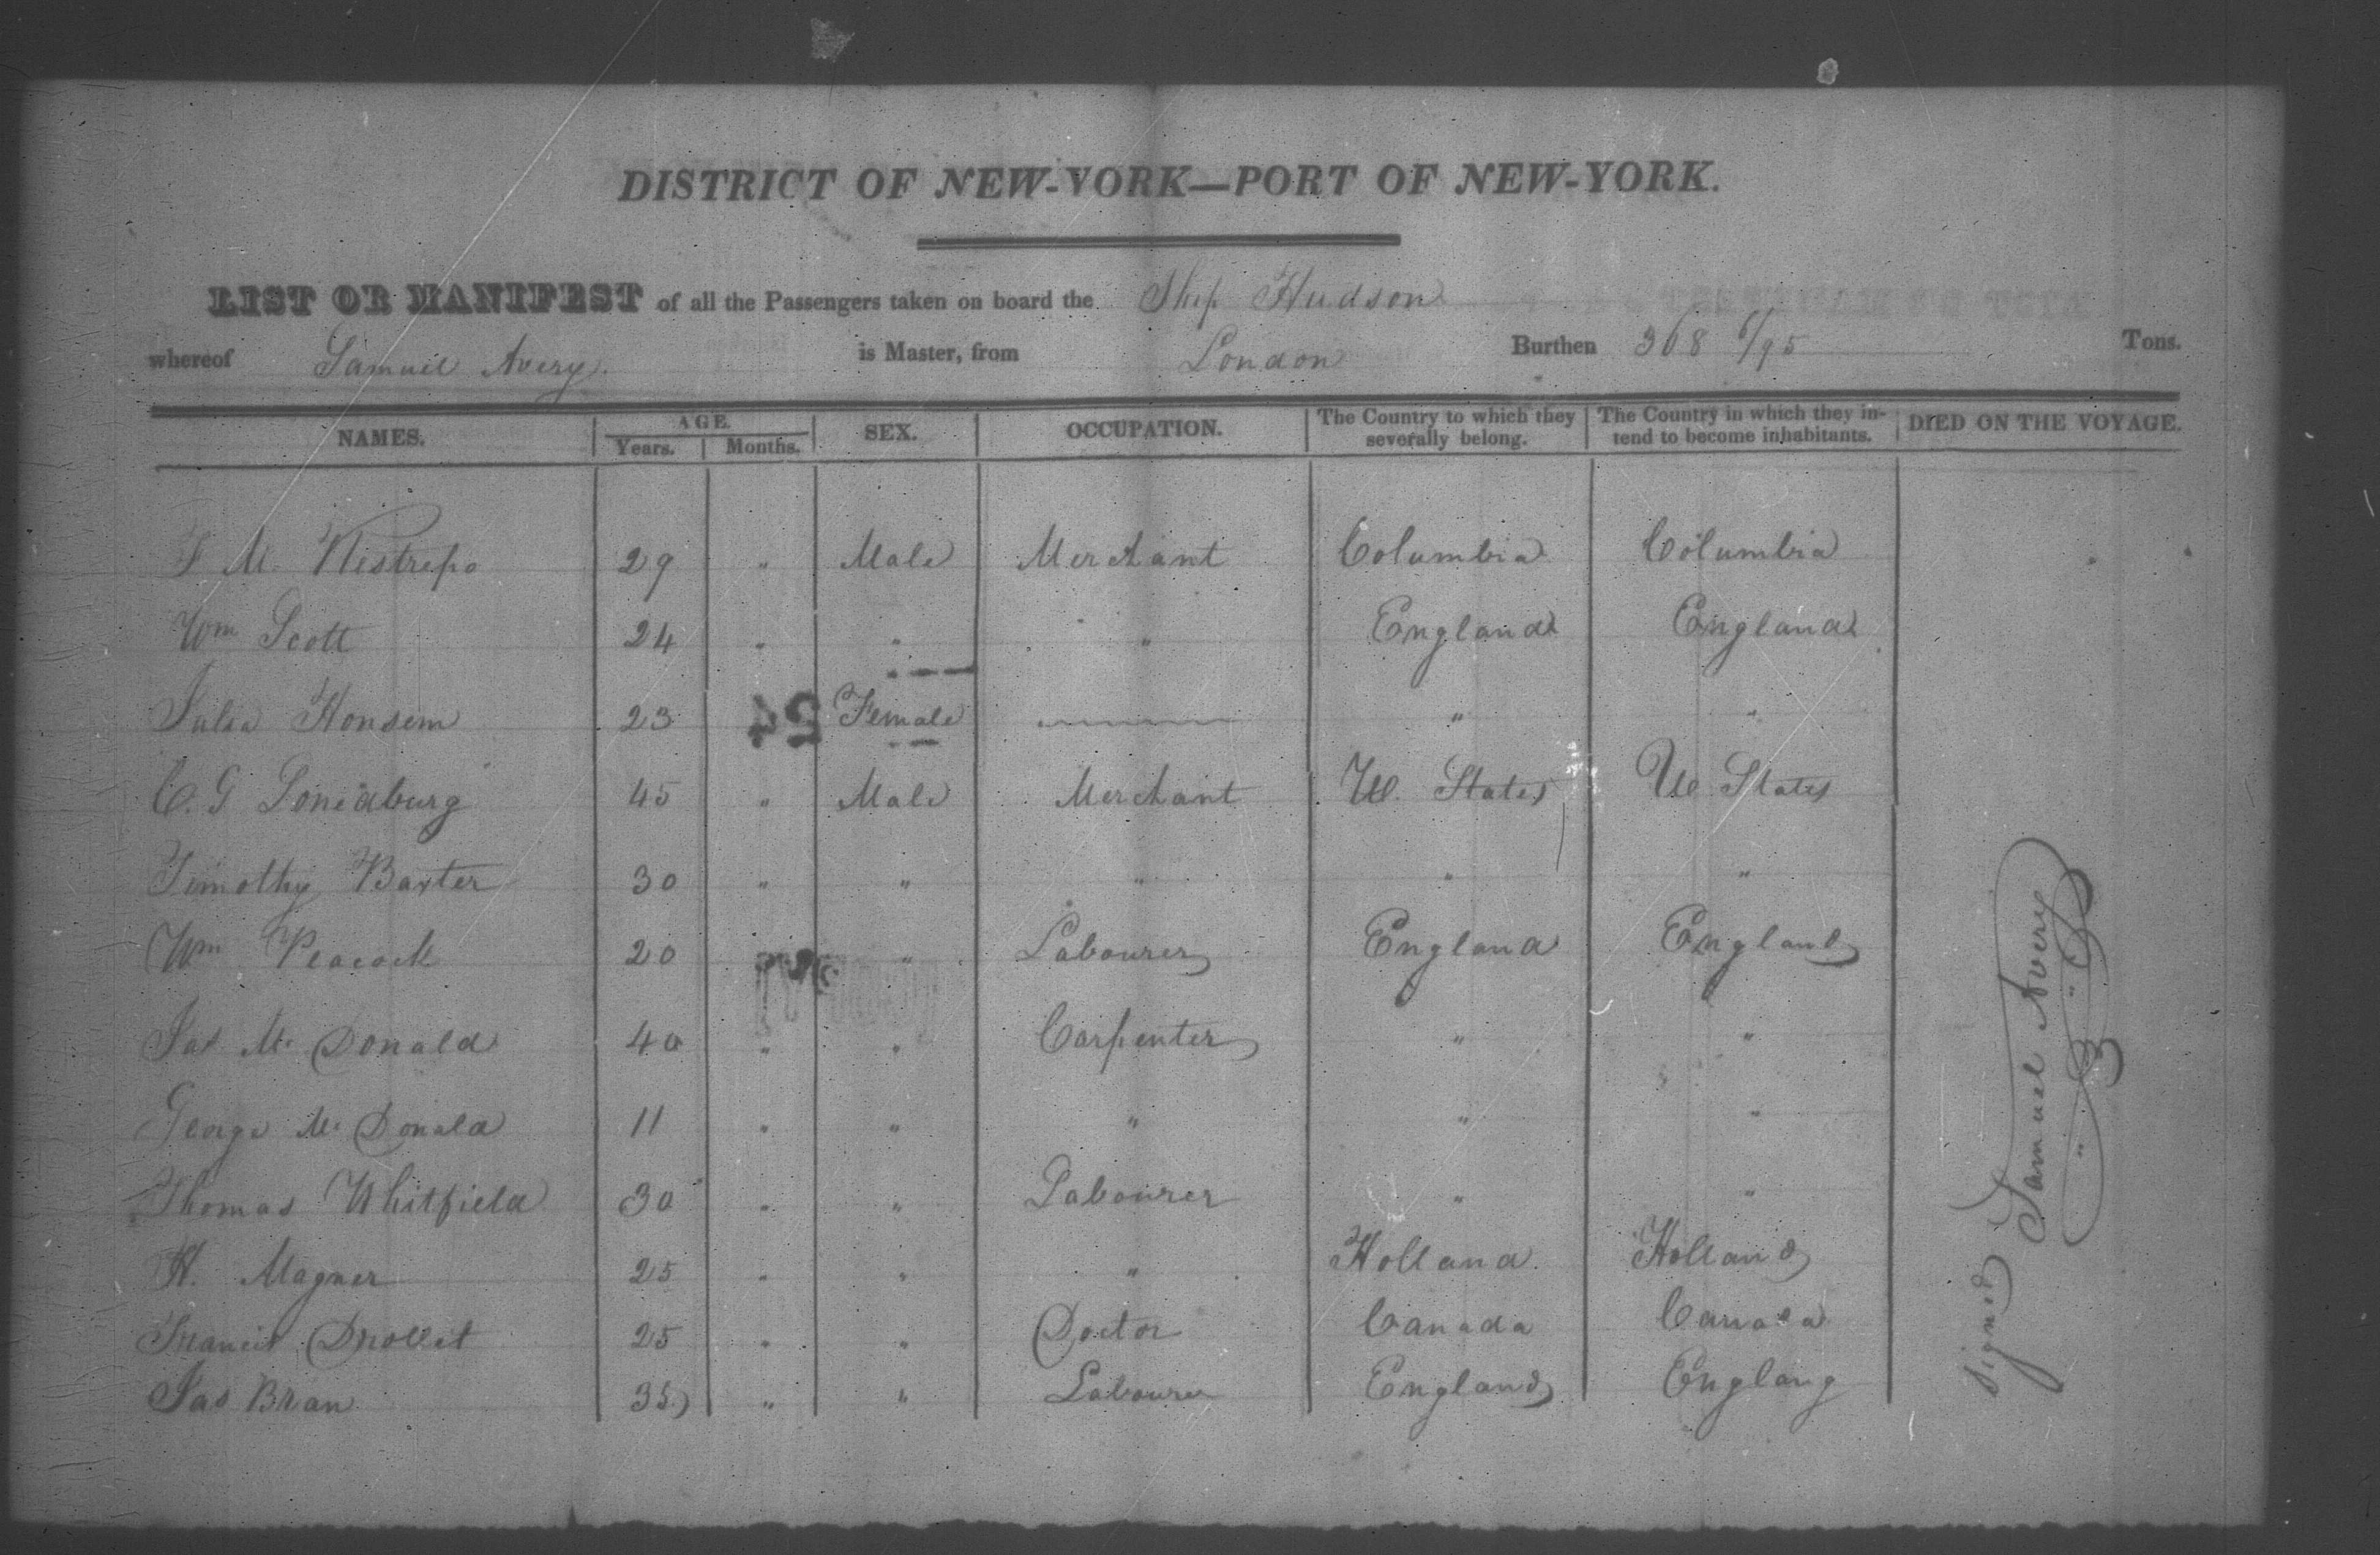 DISTRICT OF NEW-YORK—PORT OF NEW-YORK.
LIST OR MANIFEST of all the Passengers taken on board the Ship Hudson
whereof Samuel Avery. is Master, from London Burthen 368 6/95 Tons.
NAMES. AGE. Years. Months. SEX. OCCUPATION. The Country to which they severally belong. The Country in which they intend to become inhabitants. DIED ON THE VOYAGE.
M. Restrepo 29 " Male Merchant Columbia Columbia
Wm Scott 24 " " " England England
Julia 23 54 Female England " "
C. G 45 " Male Merchant U. States U States
Timothy Baxter 30 " " " " "
Wm Peacock 20 " Labourer England England
Jas Mc Donald 40 " " Carpenter " "
George Mc Donald 11 " " " " "
Thomas Whitfield 30 " " Labourer " "
H. Magner 25 " " " Holland. Holland
Francis Drollet 25 " " Doctor Canada Canada
Jas Bran 35 " " Labourer England England
Signed Samuel Avery